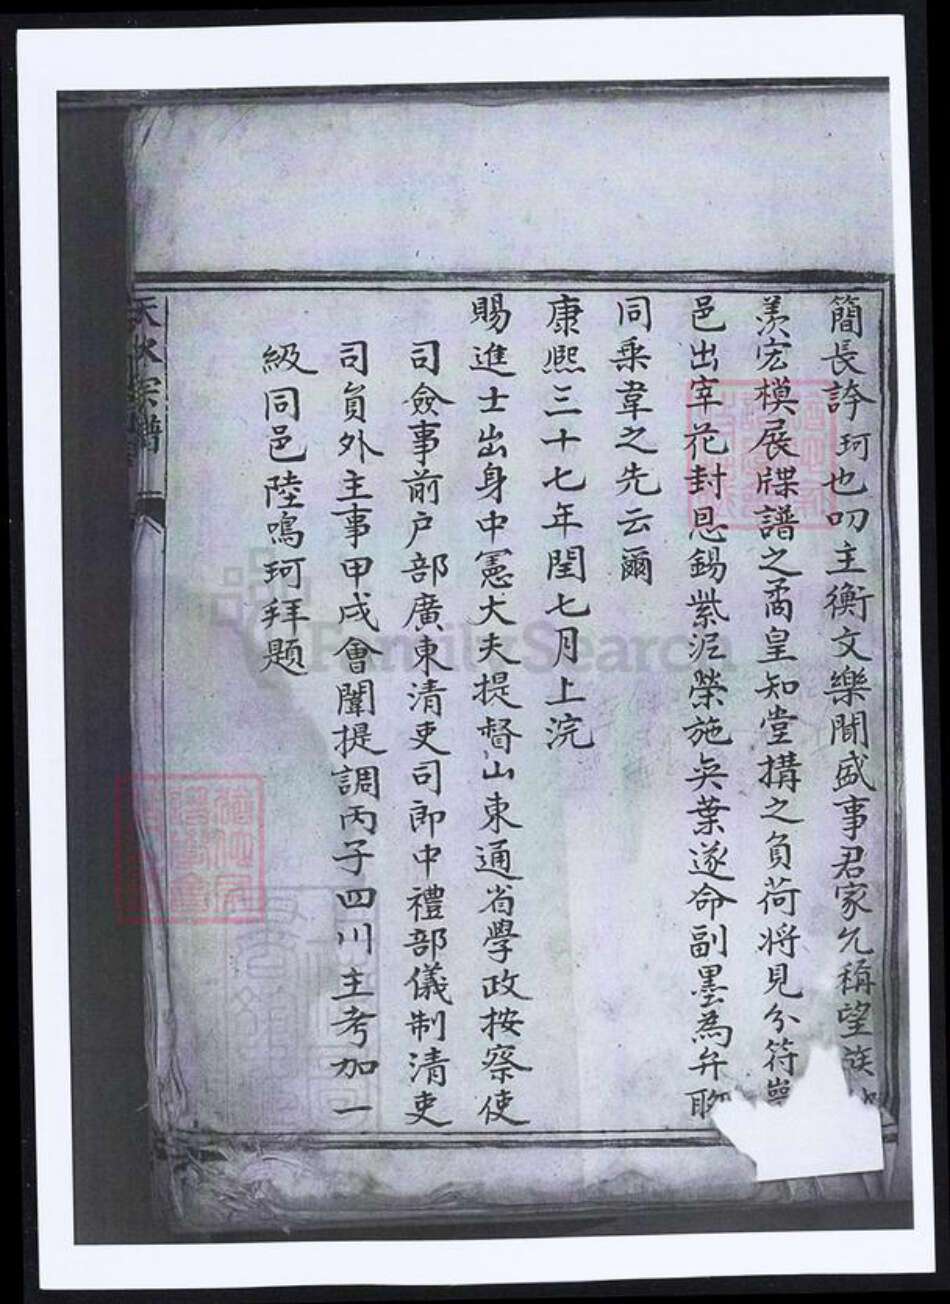 簡長誇珂也叨主衡文樂聞盛事君家允稱望族
羨宏模展牒譜之矞皇知堂搆之負荷將見分符
邑出宰花封恩錫紫泥榮施奕葉遂命副墨為弁聊
同乗韋之先云爾
康熙三十七年閏七月上浣
賜進士出身中憲大夫提督山東通省學政按察使
司僉事前户部廣東清吏司郎中禮部儀制清吏
司員外主事甲戌會闈提調丙子四川主考加一
級同邑陸鳴珂拜題
天水宗譜
FamilySearch